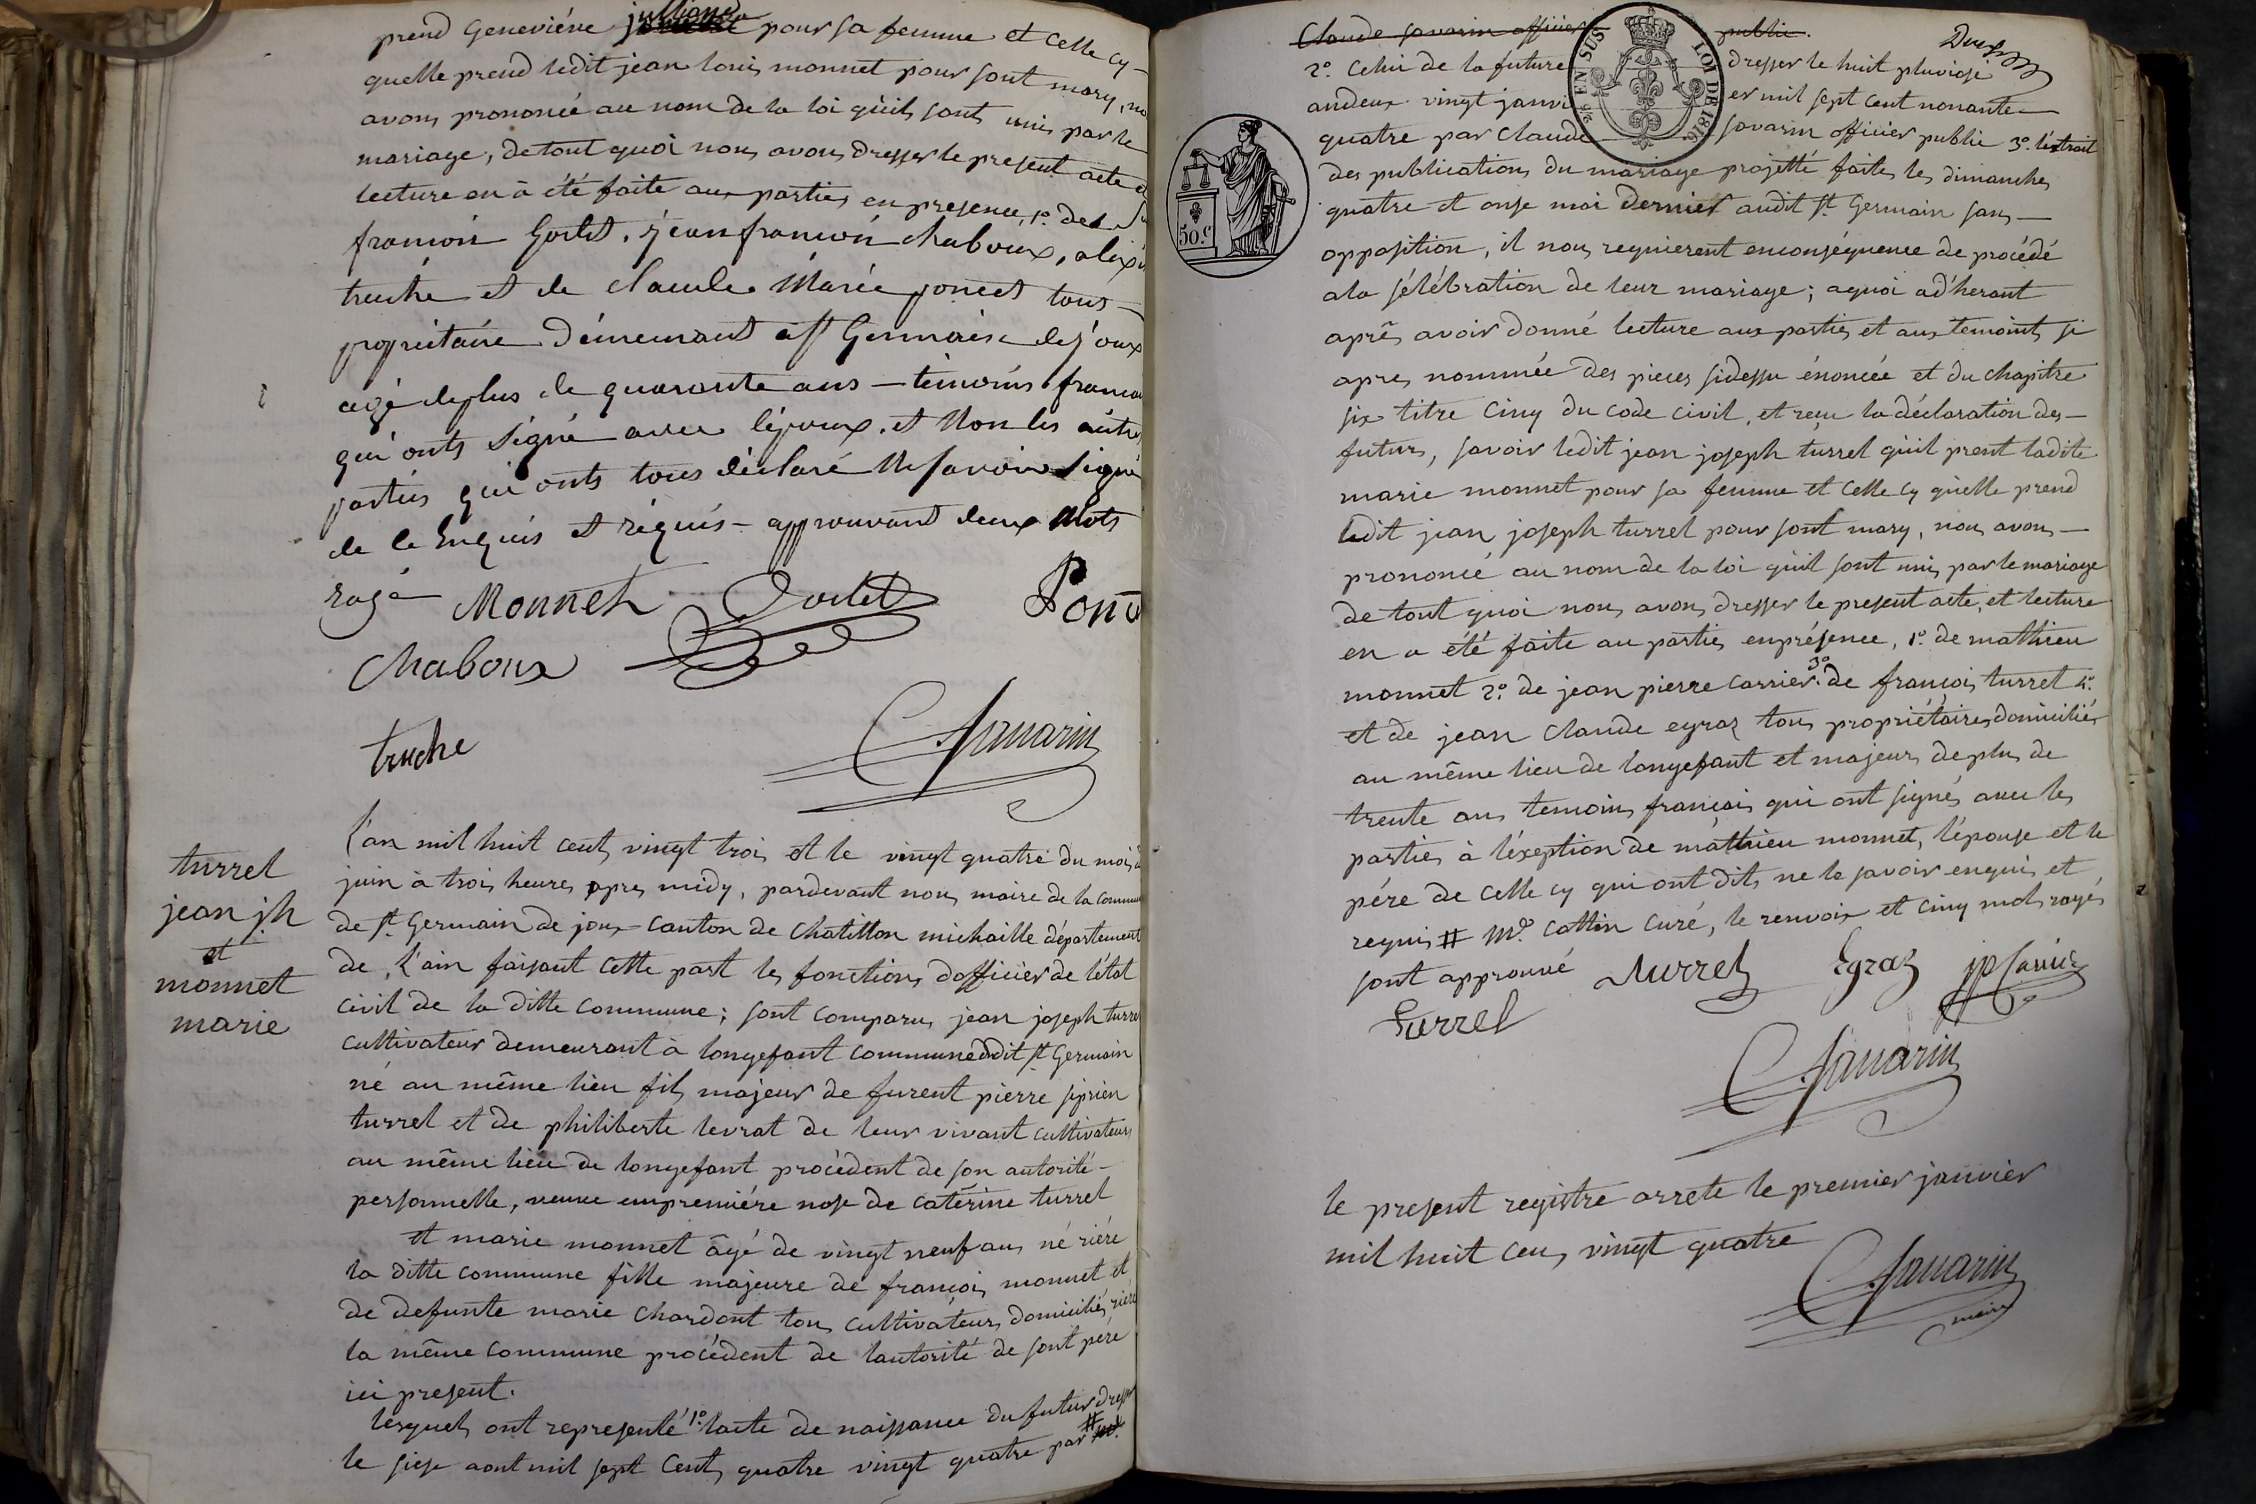 prend Geneviéve jullianne pour sa femme et celle cy
quelle prend ledit jean louis monnet pour sont mary, no
avons prononcée au nom de la loi qu'ils sont unis par le
mariage, de tout quoi nous avons dresser le present acte
lecture en à été faite aux parties en presence, 1.º de
françoi Gortet, jean françoi chaboux,
truche et de claude Marie poncet tous
propriétaire démeurant à st Germain de joux
agé de plus de quarante ans - témoins françai
qui onts signé avec l'époux, et Non les autres
parties qui onts tous déclaré Ne savoir signé
de ce Enquis et réquis - approuvant deux Mots
rayé Monnet Gortet Ponc
Chaboux
truche CSavarin
turrel
jean jh
et
monnet
marie
L'an mil huit cent vingt trois et le vingt quatre du mois d
juin à trois heures apres midy, pardevant nous maire de la commun
de st Germain de joux canton de chatillon michaille département
de l'ain faisant cette part les fonctions d'officier de l'état
civil de la ditte commune; sont comparus jean joseph turre
cultivateur demeurant à longefant commune dudit st Germain
né au même lieu fils majeur de furent pierre siprien
turrel et de philiberte levrat de leur vivant cultivateurs
au même lieu de longefant procédent de son autorité
personnelle, veuve en premiére nose de catèrine turrel
et marie monnet âgé de vingt neuf ans né riére
la ditte commune fille majeure de françois monnet et
de defunte marie chardont tous cultivateurs domiciliés riére
la même commune procédent de l'autorité de sont pére
ici present.
lesquels ont representé 1º l'acte de naissance du futur dress
le siese aout mil sept cents quatre vingt quatre par #
Claude savarin officier public.
2º. Celui de la future dresser le huit pluviose
an deux vingt janvier mil sept cent nonante
quatre par Claude savarin officier public 3º. l'extrait
des publications du mariage projetté faites les dimanches
quatre et onse mai dernier audit st Germain sans
opposition, il nous requierent en conséquence de procédé
a la sélébration de leur mariage; a quoi ad'herant
après avoir donné lecture aux parties et aux temoints si
apres nommée des pieces sidessu énoncée et du chapitre
six titre cinq du code civil, et reçu la déclaration des
futurs, savoir ledit jean joseph turrel qu'il prent ladite
marie monnet pour sa femme et celle cy qu'elle prend
ledit jean joseph turrel pour sont mary, nous avons
prononcé au nom de la loi qu'il sont unis par le mariage
de tout quoi nous avons dresser le present acte, et lecture
en a été faite au parties en présence, 1º. de mathieu
monnet 2º. de jean pierre carrier 3º de françois turret 4º.
et de jean claude egraz tous propriétaires domiciliés
au même lieu de longefant et majeurs de plus de
trente ans temoins français qui ont signés avec les
parties à l'éxeption de mathieu monnet, l'épouse et le
pére de celle cy qui ont dits ne le savoir enquis et
requis # mº. cottin curé, le renvoix et cinq mots rayés
sont approuvé turrel Egraz jpCarrier
turrel
CSavarin
le present registre arrete le premier janvier
mil huit cens vingt quatre
CSavarin
maire
50.C
EN SUS
LOI DE 1816